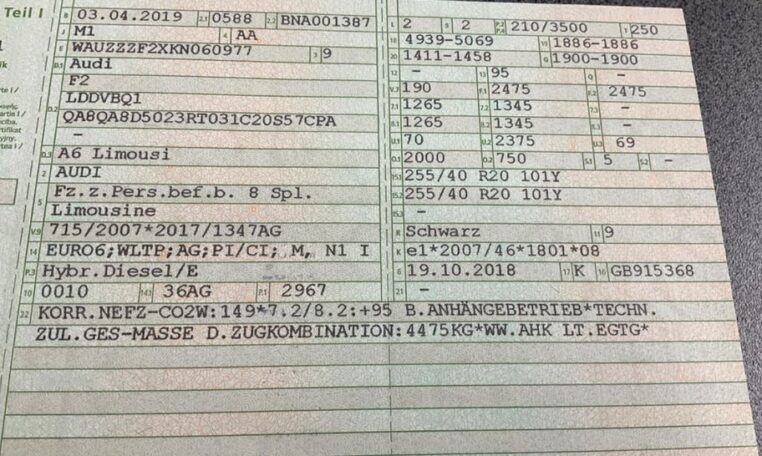 Teil I
B 03.04.2019 2.1 0588 2.2 BNA001387
J M1 4 AA
E WAUZZZF2XKN060977 3 9
D.1 Audi
F2
D.2 LDDVBQ1
QA8QA8D5023RT031C20S57CPA
–
D.3 A6 Limousi
2 AUDI
5 Fz.z.Pers.bef.b. 8 Spl.
Limousine
V.9 715/2007*2017/1347AG
14 EURO6;WLTP;AG;PI/CI; M, N1 I
P.3 Hybr.Diesel/E
10 0010 14.1 36AG P.1 2967
L 2 9 2 P.2 P.4 210/3500 T 250
18 4939-5069 19 1886-1886
20 1411-1458 G 1900-1900
12 – 13 95 Q –
V.7 190 F.1 2475 F.2 2475
7.1 1265 7.2 1345 7.3 –
8.1 1265 8.2 1345 8.3 –
U.1 70 U.2 2375 U.3 69
O.1 2000 O.2 750 S.1 5 S.2 –
15.1 255/40 R20 101Y
15.2 255/40 R20 101Y
15.3 –
R Schwarz 11 9
K e1*2007/46*1801*08
6 19.10.2018 17 K 16 GB915368
21 –
22 KORR.NEFZ-CO2W:149*7.2/8.2:+95 B.ANHÄNGEBETRIEB*TECHN.
ZUL.GES-MASSE D.ZUGKOMBINATION:4475KG*WW.AHK LT.EGTG*